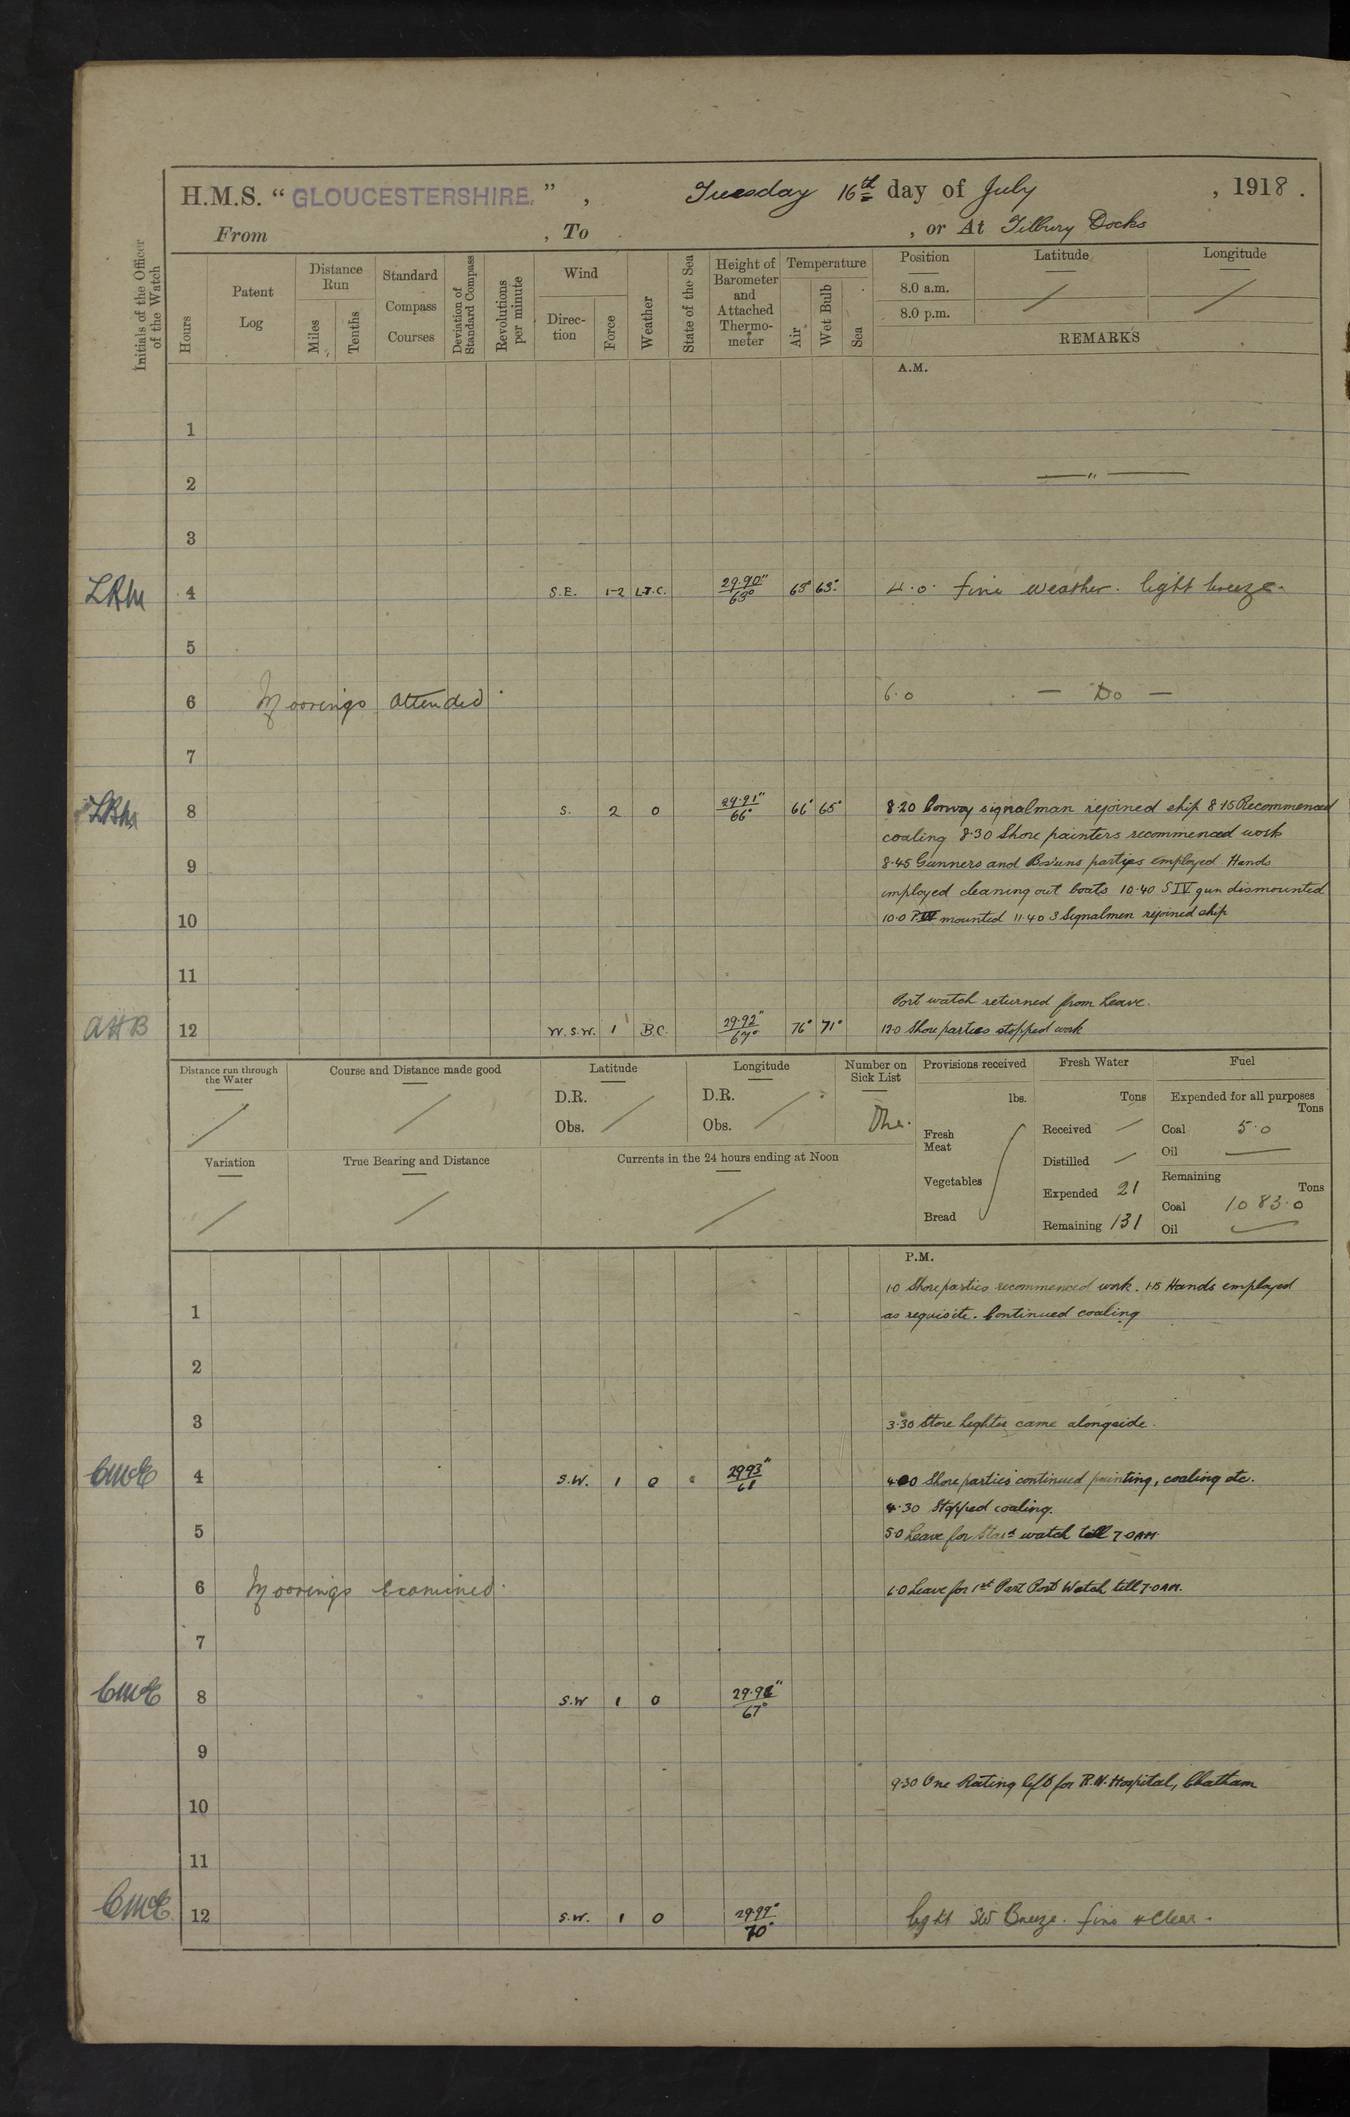 H.M.S. "GLOUCESTERSHIRE.", Tuesday 16th day of July, 1918.
From , To , or At Tilbury Docks
Initials of the Officer of the Watch
Hours
Patent Log
Distance Run
Miles
Tenths
Standard Compass Courses
Deviation of Standard Compass
Revolutions per minute
Wind
Direction
Force
Weather
State of the Sea
Height of Barometer and Attached Thermometer
Temperature
Air
Wet Bulb
Sea
Position
8.0 a.m.
8.0 p.m.
Latitude
Longitude
REMARKS
A.M.
1
2 — " —
3
4 S.E. 1-2 29.90" 4.0. fine weather. light breeze.
5
6 Moorings attended. 6.0 — Do —
7
8 S. 2 O 29.91" 66° 66° 65° 8.20 Convoy signalman rejoined ship 8.15 Recommenced
coaling 8.30 Shore painters recommenced work
9 8.45 Gunners and Bos'uns parties employed. Hands
employed cleaning out boats 10.40 S IV gun dismounted
10 10.0 P. mounted 11.40 3 Signalmen rejoined ship
11
Port watch returned from Leave.
AHB 12 W.S.W. 1 B.C. 29.92" 67° 76° 71° 12.0 Shore parties stopped work
Distance run through the Water
Course and Distance made good
Latitude
D.R.
Obs.
Longitude
D.R.
Obs.
Number on Sick List
Provisions received
lbs.
Fresh Meat
Vegetables
Bread
Fresh Water
Tons
Received
Distilled
Expended 21
Remaining 131
Fuel
Expended for all purposes
Tons
Coal 5.0
Oil
Remaining
Tons
Coal 1083.0
Oil
Variation
True Bearing and Distance
Currents in the 24 hours ending at Noon
P.M.
1.0 Shore parties recommenced work. 1.15 Hands employed
1 as requisite. Continued coaling
2
3 3.30 Store lighter came alongside.
4 S.W. 1 O 29.93" 61 4.00 Shore parties continued painting, coaling etc.
4.30 Stopped coaling.
5 5.0 Leave for Starbd watch till 7.0 AM
6 Moorings Examined. 6.0 Leave for 1st Part Port Watch till 7.0 AM.
7
8 S.W 1 O 67°
9
9.30 One Rating left for R.N. Hospital, Chatham
10
11
12 S.W. 1 O 29.99" 70° light SW Breeze. fine & Clear.